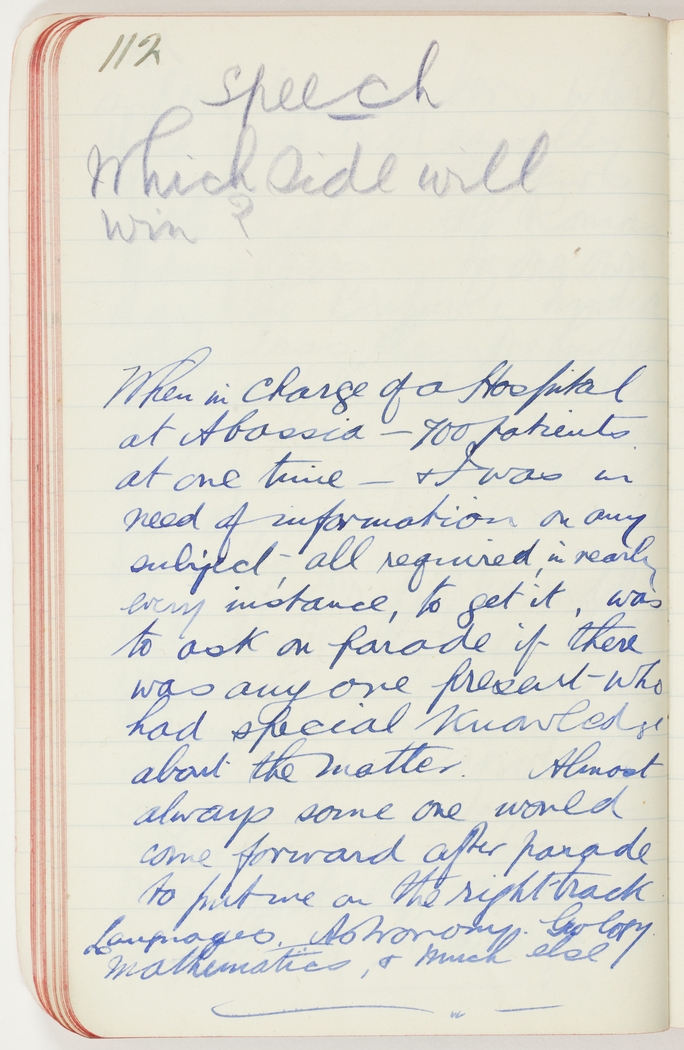 112
Speech
Which side will
win ?
When in charge of a Hospital
at Abassia — 700 patients
at one time — & I was in
need of information on any
subject, all required, in nearly
every instance, to get it, was
to ask on parade if there
was any one present who
had special knowledge
about the matter. Almost
always some one would
come forward after parade
to put me on the right track
Languages. Astronomy. Geology.
Mathematics, & much else